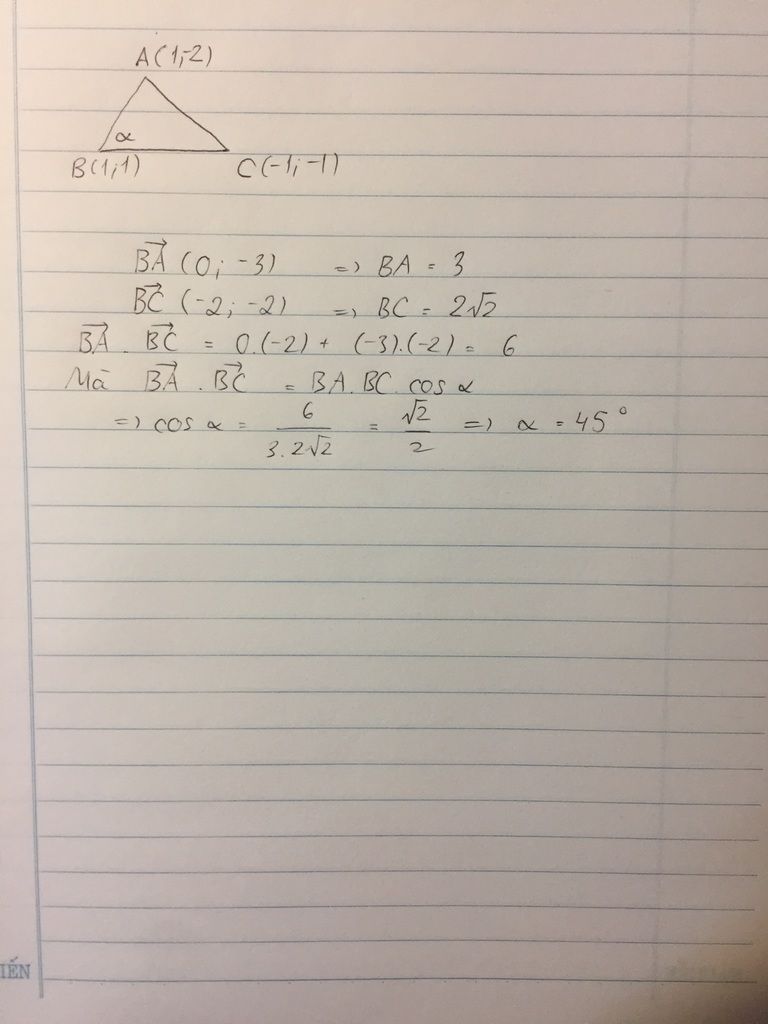 A(1;-2)
α
B(1;1) C(-1;-1)
$\overrightarrow{BA}$ (0; -3) => BA = 3
$\overrightarrow{BC}$ (-2; -2) => BC = 2√2
$\overrightarrow{BA}$ . $\overrightarrow{BC}$ = 0.(-2) + (-3).(-2) = 6
Mà $\overrightarrow{BA}$ . $\overrightarrow{BC}$ = BA.BC.cos α
=> cos α = $\frac{6}{3.2\sqrt{2}}$ = $\frac{\sqrt{2}}{2}$ => α = 45°
IẾN